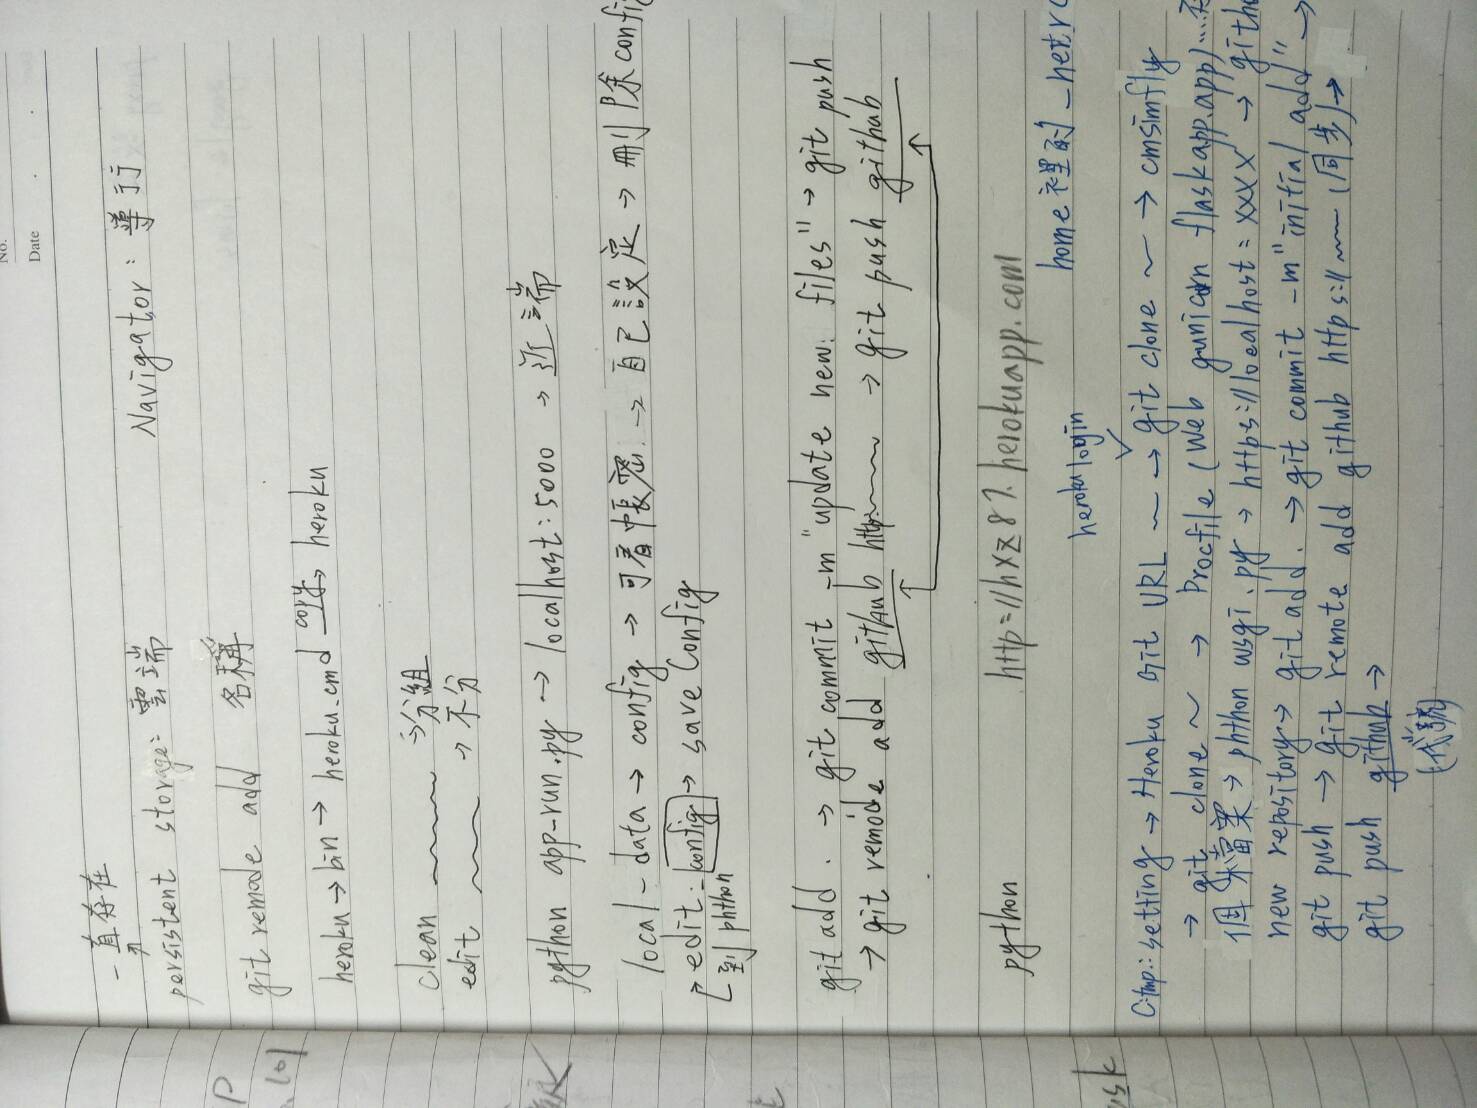 No.
Date
一直存在
persistent storage: 雲端 Navigator: 導行
git remode add 名稱
heroku → bin → heroku.cmd copy→ heroku
clean → 分組
edit → 不分
python app-run.py → localhost:5000 → 近端
local - data → config → 可看帳密 → 自己設定 → 刪除config
edit - config → save Config
到 phthon
git add . → git commit -m "update new files" → git push
→ git remode add github http → git push github
python http=//hxz87.herokuapp.com
home裡的_netrc
heroku login
C:tmp:: setting → Heroku Git URL ~ → git clone ~ → cmsimfly
→ git clone ~ → Procfile (Web gunicorn flaskapp.app)...
個檔案 → phthon wsgi.py → https://localhost=xxxx → gith
new repository → git add . → git commit -m "initial add" →
git push → git remote add github https:// (同步) →
git push github →
(代號)